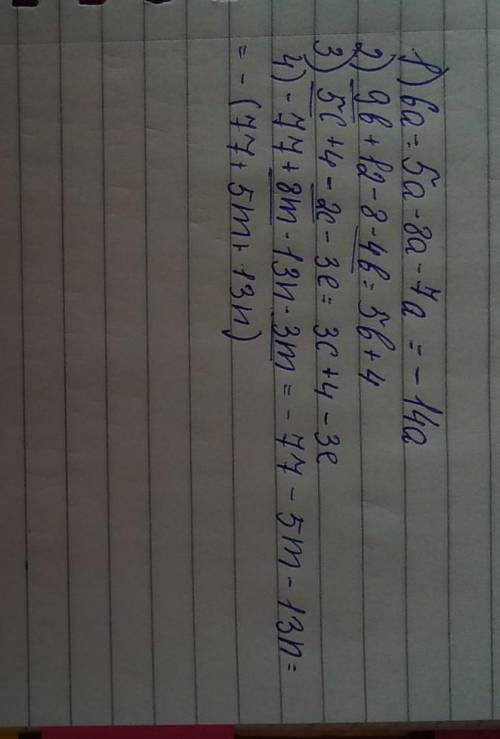 1) 6a - 5a - 8a - 7a = - 14a
2) 9b + 12 - 8 - 4b = 5b + 4
3) 5c + 4 - 2c - 3e = 3c + 4 - 3e
4) - 77 + 8m - 13n - 3m = - 77 - 5m - 13n =
= - (77 + 5m + 13n)